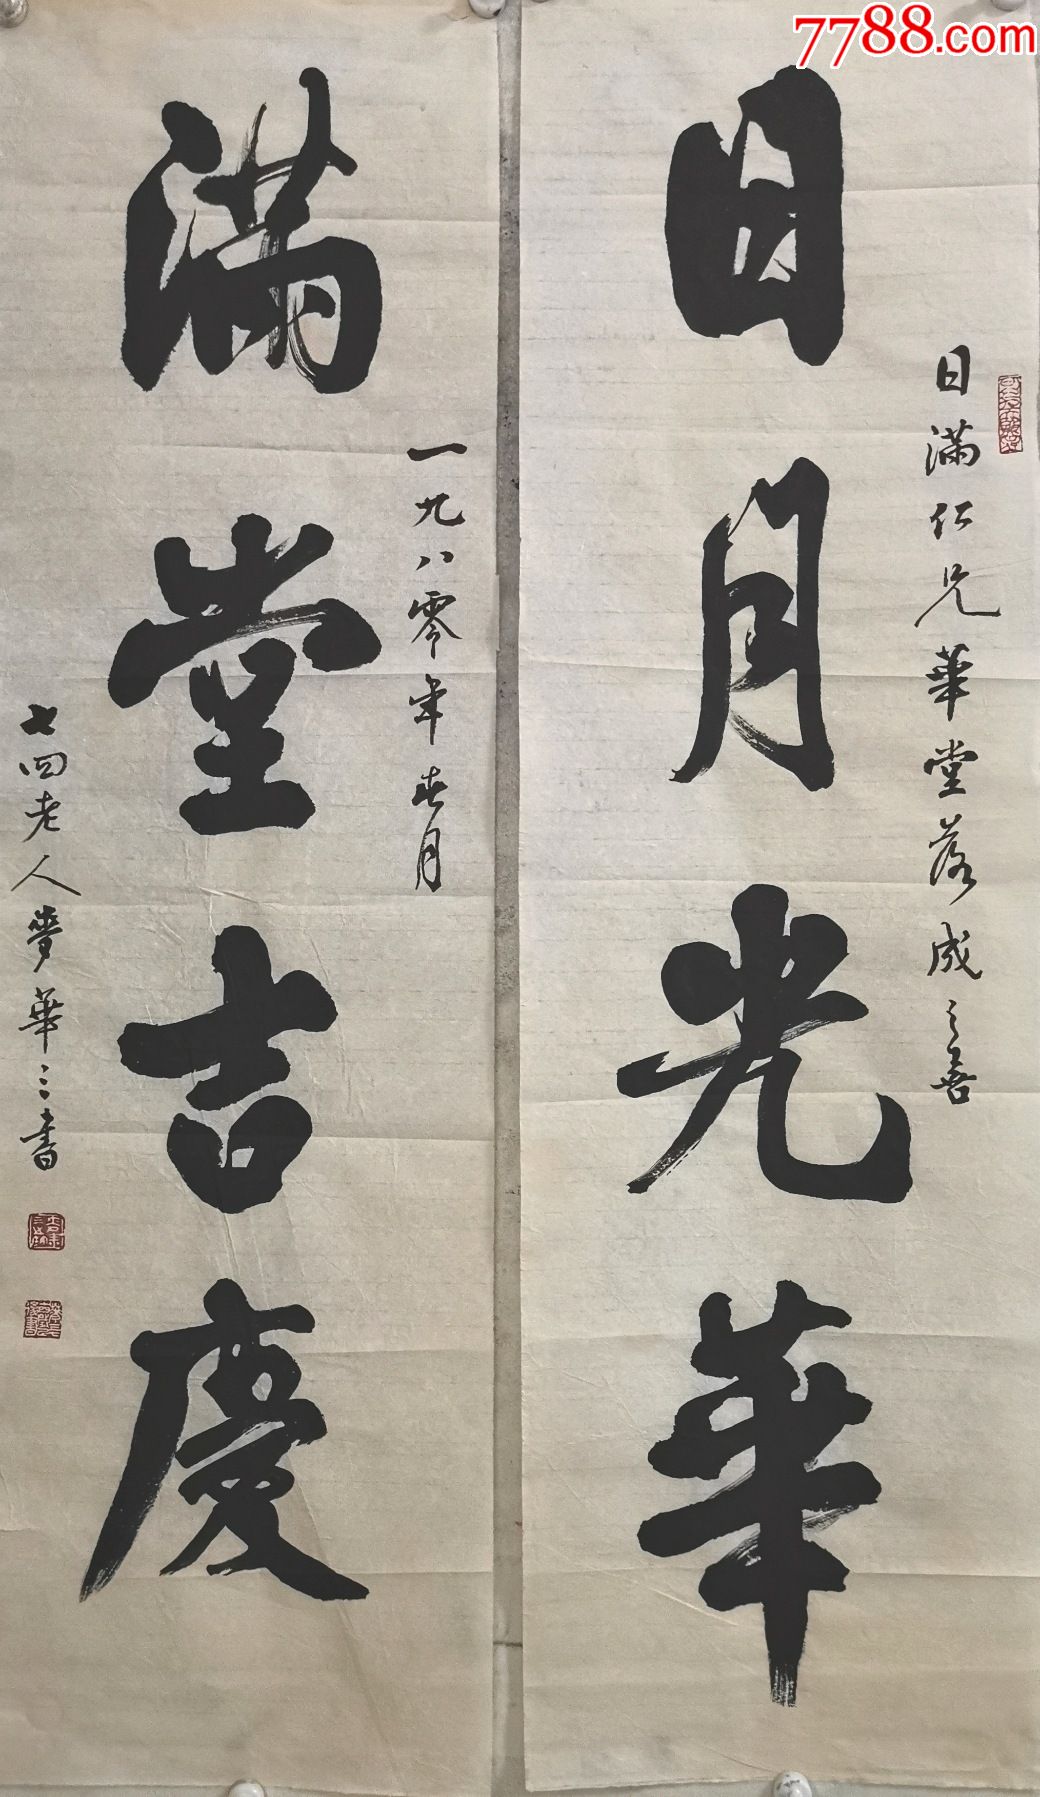 7788.com
日月光華
日滿仁兄華堂落成之喜
滿堂吉慶
一九八零年春月
七四老人夢華三書